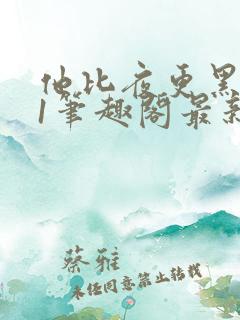 他比夜更黑
1笔趣阁最新
蔡雅
未经同意禁止转载